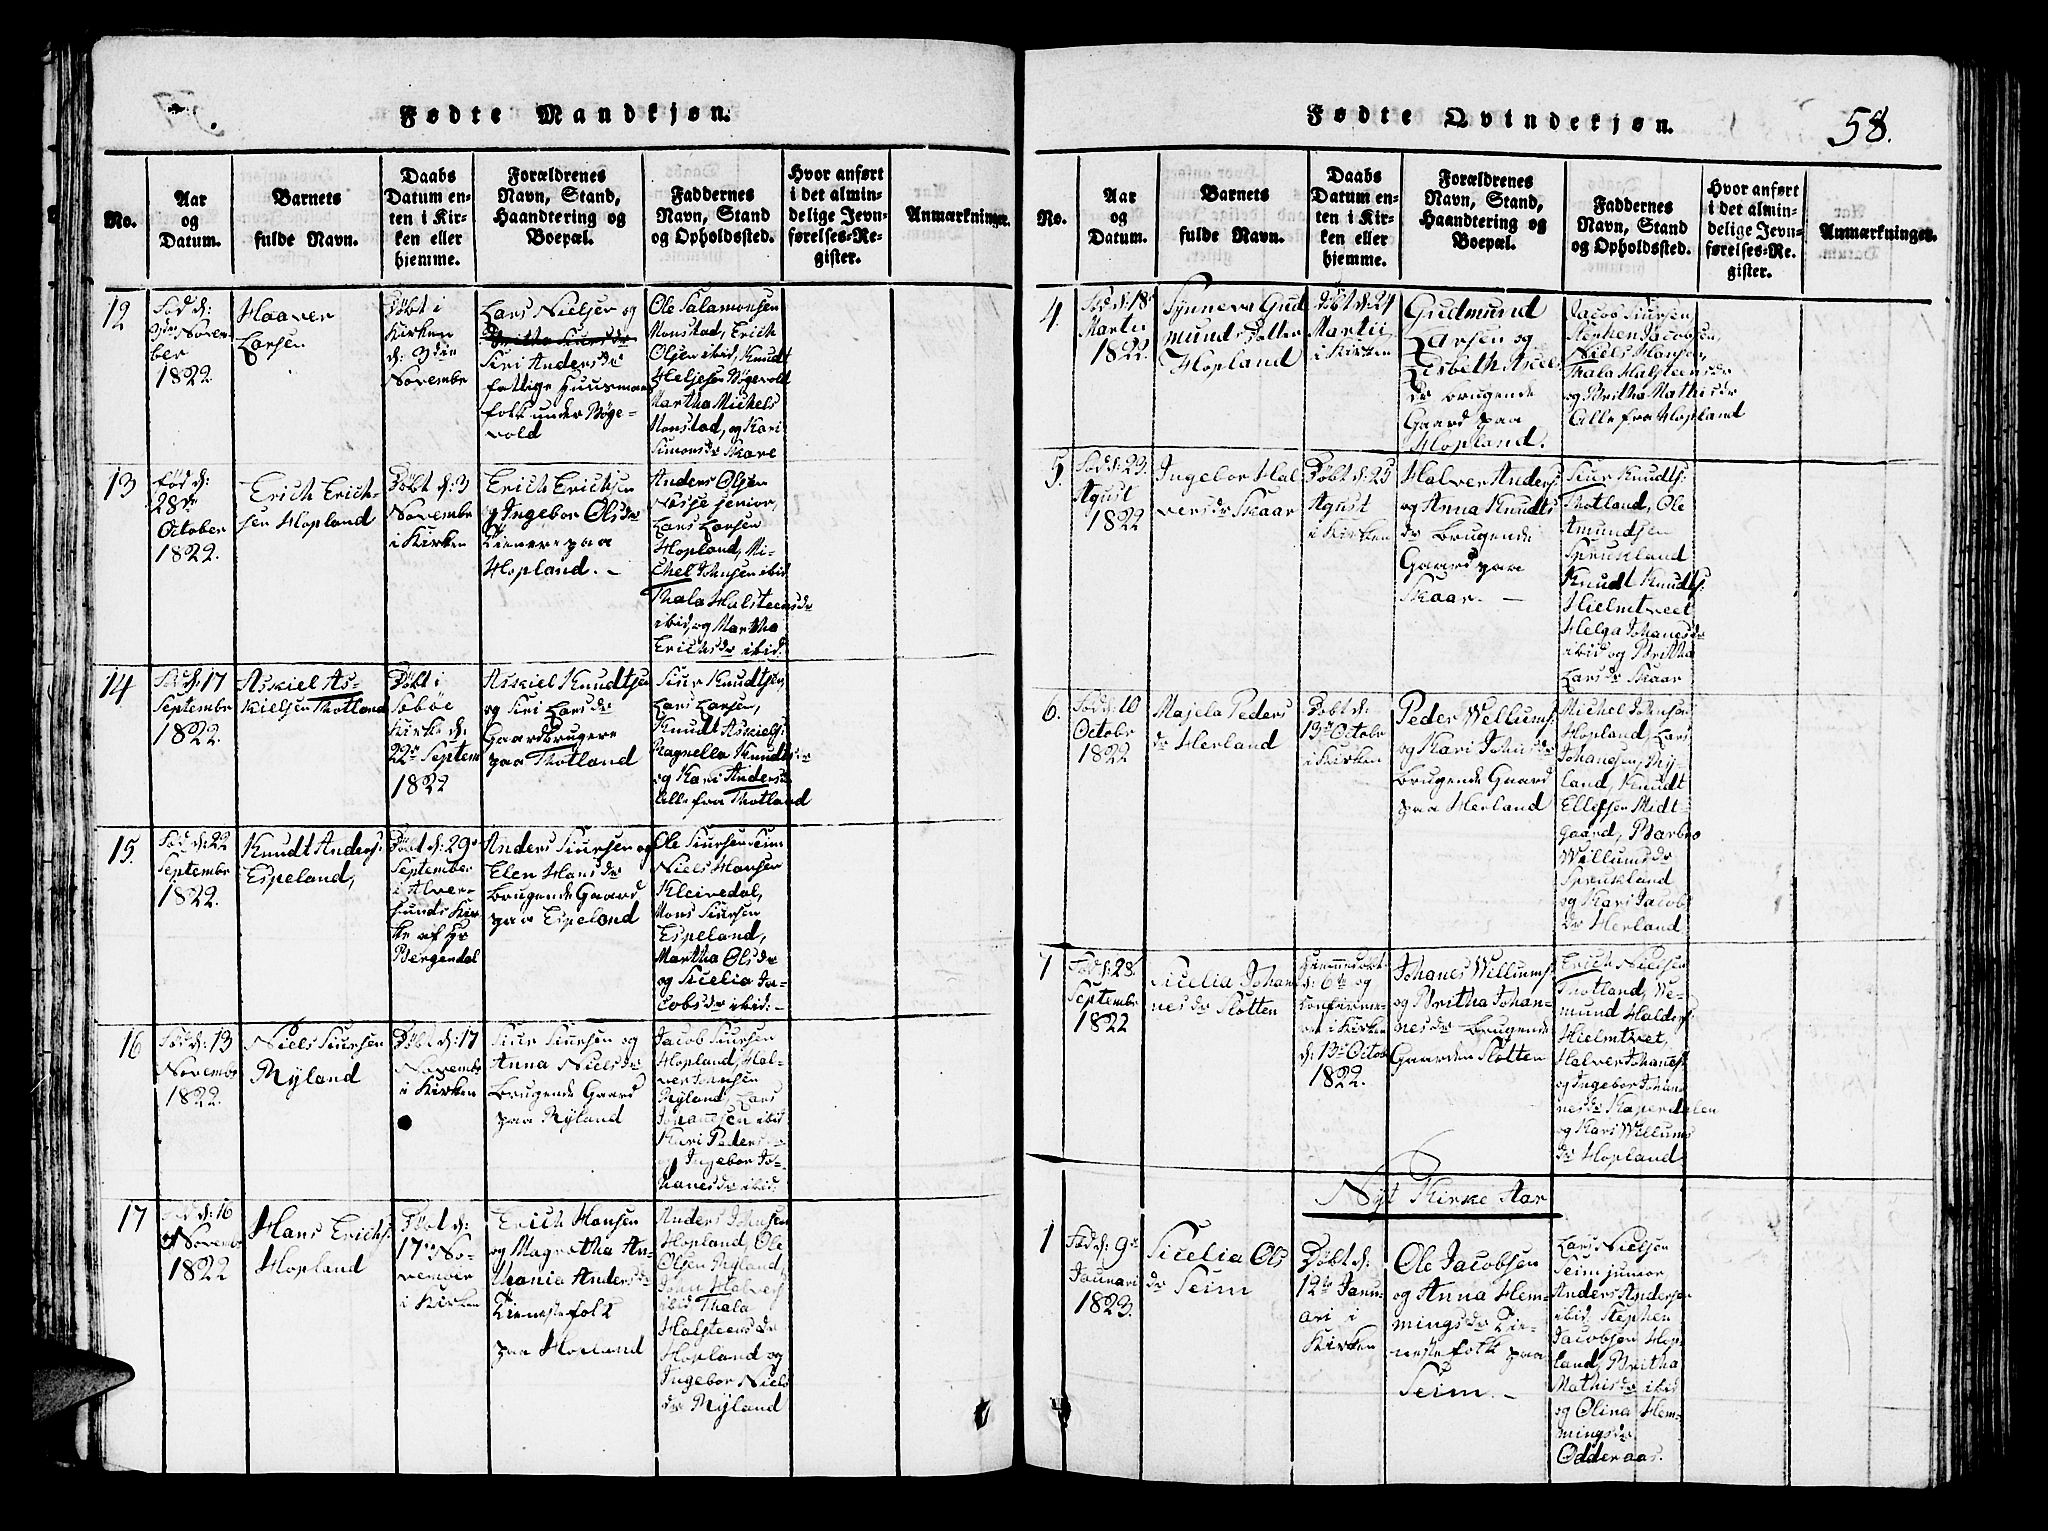 Fødte Mandkjøn.
No.
Aar
og
Datum.
Barnets
fulde Navn.
Daabs
Datum en-
ten i Kir-
ken eller
hjemme.
Forældrenes
Navn, Stand,
Haandtering og
Boepæl.
Faddernes
Navn, Stand
og Opholdssted.
Hvor anført
i det almin-
delige Jevn-
førelses-Re-
gister.
Anmærkninger.
12
Fød d:
3die Novem-
ber
1822.
Haaver
Larsen
Døbt i
Kirken
d: 3die
Novembr
Lars Nielsen og
Siri Andersdr
fattige Huusmands
folk under Bøge-
vold
Ole Salamonsen
Monstad, Erich
Olsen ibid, Knudt
Heljesen Bøgevold
Martha Michels
Monstad, og Kari
Simonsdr Skare
13
Fød d:
28de
October
1822.
Erich Erich-
sen Hopland
Døbt d: 3
Novembr
i Kirken
Erich Erichsen
og Ingebor Olsdr
Tienere paa
Hopland. -
Anders Olsen
senior,
Lars Larsen
Hopland, Mi-
chel Johnsen ibid
Thala Halsteensdr
ibid, og Martha
Erichsdr ibid:
14
Fød d: 17
Septembr
1822.
Askiel As-
kielsen Thotland
Døbt i
Sæbøe
Kirke d:
22de Septem
1822
Askiel Knudtsen
og Siri Larsdr
Gaardbrugere
paa Thotland
Siur Knudtsen,
Lars Larsen,
Knudt Askiels:
Ragnella Knudtsdr
og Kari Andersdr
Alle fra Thotland
15.
Fød d: 22
Septembr
1822.
Knudt Anders:
Espeland,
Døbt d: 29de
September
i Alver-
sunds Kir-
ke af Hr
Bergendal
Anders Siursen og
Elen Hansdr
brugende Gaard
paa Espeland
Ole Siursen Seim
Niels Hansen
Kleivedal,
Mons Siursen
Espeland,
Martha Olsdr
og Sicelia Ja-
cobsdr ibid: -
16
Fød d: 13
Novembr
1822.
Niels Siursen
Ryland
Døbt d: 17
Novembr
i Kirken
Siur Siursen og
Anna Nielsdr
brugende Gaard
paa Ryland
Jacob Siursen
Hopland, Hal-
ver Iversen
Ryland, Lars
Johannesen ibid
Kari Pedersdr
og Ingebor Jo-
hanesdr ibid:
17
Fød d: 16
Novembr
1822
Hans Erichs:
Hopland
Døbt d:
17de No-
vember
i Kirken
Erich Hansen
og Magretha An-
thonia Andersdr
Tienestefolk
paa Hopland
Anders Johnsen
Hopland, Ole
Olsen Ryland,
John Halvers
ibid Thala
Halsteensdr
Hopland og
Ingebor Niels
dr Ryland
Fødte Qvindekjøn.
58.
No.
Aar
og
Datum.
Barnets
fulde Navn.
Daabs
Datum en-
ten i Kir-
ken eller
hjemme.
Forældrenes
Navn, Stand,
Haandtering og
Boepæl.
Faddernes
Navn, Stand
og Opholdssted.
Hvor anført
i det almin-
delige Jevn-
førelses-Re-
gister.
Anmærkninger.
4.
Fød d: 18de
Martii
1822.
Synneva Gud
munds Datter
Hopland
Døbt d: 24
Martii
i Kirken
Gudmund
Larsen og
Lisbeth Axels
dr brugende
Gaard paa
Hopland.
Jacob Siursen,
Stephen Jacobsen,
Niels Hansen,
Thala Halsteensdr
og Britha Mathisdr
Alle fra Hopland
5.
Fød d: 23.
Agust
1822
Ingebor Hal
versdr Skaar
Døbt d: 25
Agust
i Kirken
Halver Anders:
og Anna Knudts
dr brugende
Gaard paa
Skaar. -
Siur Knudts:
Thotland, Ole
Amundsen
Spruseland
Knudt Knudts:
Hielmtveet
Helga Johanesdr
ibid og Britha
Larsdr Skaar
6.
Fød d: 10
Octobr
1822
Majela Peders
dr Herland
Døbt d:
13de Octobr
i Kirken
Peder Wellums:
og Kari Johnsdr
brugende Gaard
paa Herland
Michel Johnsen
Hopland, Lars
Johanesen, Ry-
land, Knudt
Ellefsen Midt
gaard, Barbro
Willumsdr
Spruseland
og Kari Jacobs
dr Herland
7
Fød d: 28
Septembr
1822
Sicelia Johan
nesdr Slotten
Hiemmedøbt
d: 6te og
Confirme-
ret i Kirken
d: 13de Octob
1822.
Johanes Wellums:
og Britha Johan-
nesdr brugende
Gaarden Slotten
Erich Nielsen
Thotland, We-
mund Haldors
Hielmtvet,
Halver Johanes:
og Ingebor Johan
nesdr Kaperdalen
og Kari Willums
dr Hopland
Nyt Kirke Aar
1
Fød d: 9de
Januari
1823.
Sicelia Ols
dr Seim
Døbt d:
12te Janu-
ari i
Kirken
Ole Jacobsen
og Anna Hem-
mingsdr Tie-
nestefolk paa
Seim. -
Lars Nielsen
Seim junior
Anders Andersen
ibid Stephen
Jacobsen Hop-
land, Britha
Mathisdr ibid
og Olina Hem-
mingsdr
Odderaas.